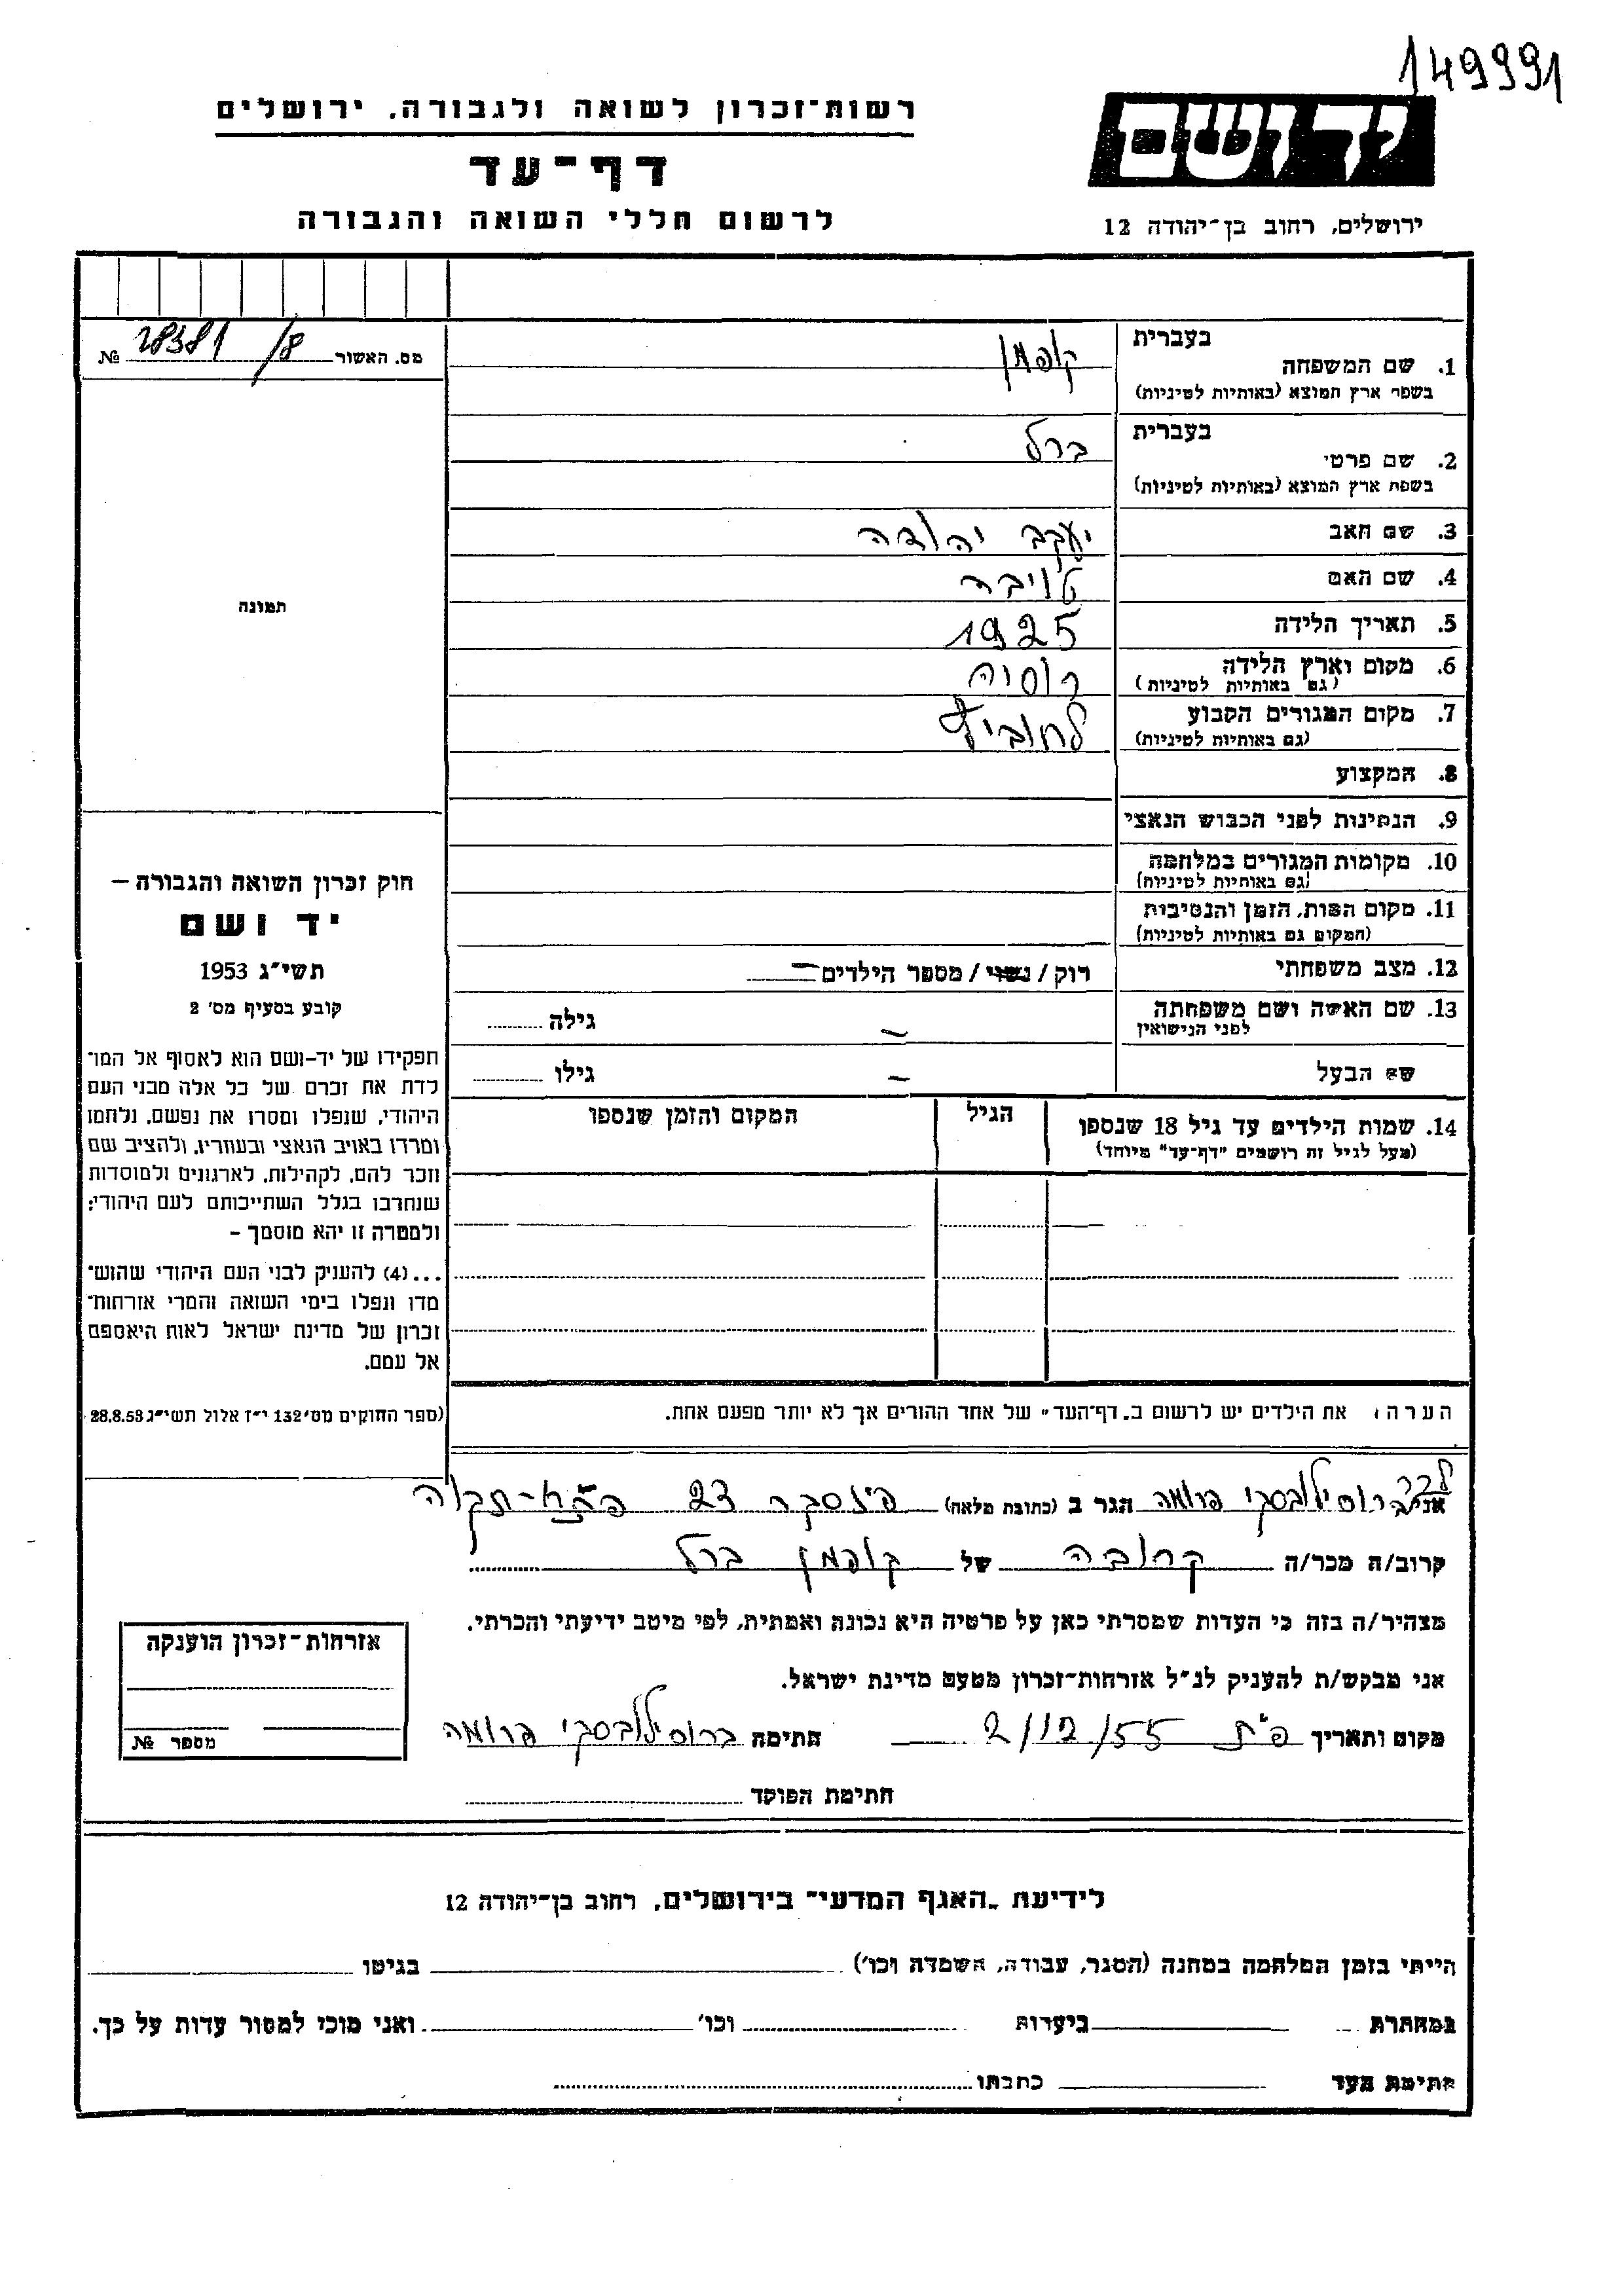 149991
רשות־זכרון לשואה ולגבורה, ירושלים
ידושם
דף־עד
לרשום חללי השואה והגבורה
ירושלים, רחוב בן־יהודה 12
מס. האשור 28381/8 №
בעברית
1. שם המשפחה קופמן
בשפת ארץ המוצא (באותיות לטיניות)
בעברית
2. שם פרטי ברל
בשפת ארץ המוצא (באותיות לטיניות)
3. שם האב יעקב יהודה
4. שם האם טויבה
5. תאריך הלידה 1925
6. מקום וארץ הלידה רוסיה
(גם באותיות לטיניות)
7. מקום המגורים הקבוע
(גם באותיות לטיניות)
8. המקצוע
9. הנתינות לפני הכבוש הנאצי
10. מקומות המגורים במלחמה
(גם באותיות לטיניות)
11. מקום המות, הזמן והנסיבות
(המקום גם באותיות לטיניות)
12. מצב משפחתי רוק / נשוי / מספר הילדים –
13. שם האשה ושם משפחתה – גילה
לפני הנישואין
שם הבעל – גילו
14. שמות הילדים עד גיל 18 שנספו הגיל המקום והזמן שנספו
(מעל לגיל זה רושמים "דף־עד" מיוחד)
הערה: את הילדים יש לרשום ב"דף־העד" של אחד ההורים אך לא יותר מפעם אחת.
תמונה
חוק זכרון השואה והגבורה –
יד ושם
תשי"ג 1953
קובע בסעיף מס' 2
תפקידו של יד-ושם הוא לאסוף אל המו־
לדת את זכרם של כל אלה מבני העם
היהודי, שנפלו ומסרו את נפשם, נלחמו
ומרדו באויב הנאצי ובעוזריו, ולהציב שם
וזכר להם, לקהילות, לארגונים ולמוסדות
שנחרבו בגלל השתייכותם לעם היהודי;
ולמטרה זו יהא מוסמך –
...(4) להעניק לבני העם היהודי שהוש־
מדו ונפלו בימי השואה והמרי אזרחות־
זכרון של מדינת ישראל לאות היאספם
אל עמם.
(ספר החוקים מס' 132 י"ז אלול תשי"ג 28.8.53
אני ברוסילובסקי פרומה הגר ב (כתובת מלאה) פינסקר 23 פתח-תקוה
קרוב/ה מכר/ה קרובה של קופמן ברל
מצהיר/ה בזה כי העדות שמסרתי כאן על פרטיה היא נכונה ואמתית, לפי מיטב ידיעתי והכרתי.
אני מבקש/ת להעניק לנ"ל אזרחות־זכרון מטעם מדינת ישראל.
מקום ותאריך פ"ת 2/12/55 חתימה ברוסילובסקי פרומה
חתימת הפוקד
אזרחות־זכרון הוענקה
מספר №
לידיעת "האגף המדעי" בירושלים, רחוב בן־יהודה 12
הייתי בזמן המלחמה במחנה (הסגר, עבודה, השמדה וכו') בגיטו
במחתרת ביערות וכו' ואני מוכן למסור עדות על כך.
חתימת העד כתבתו